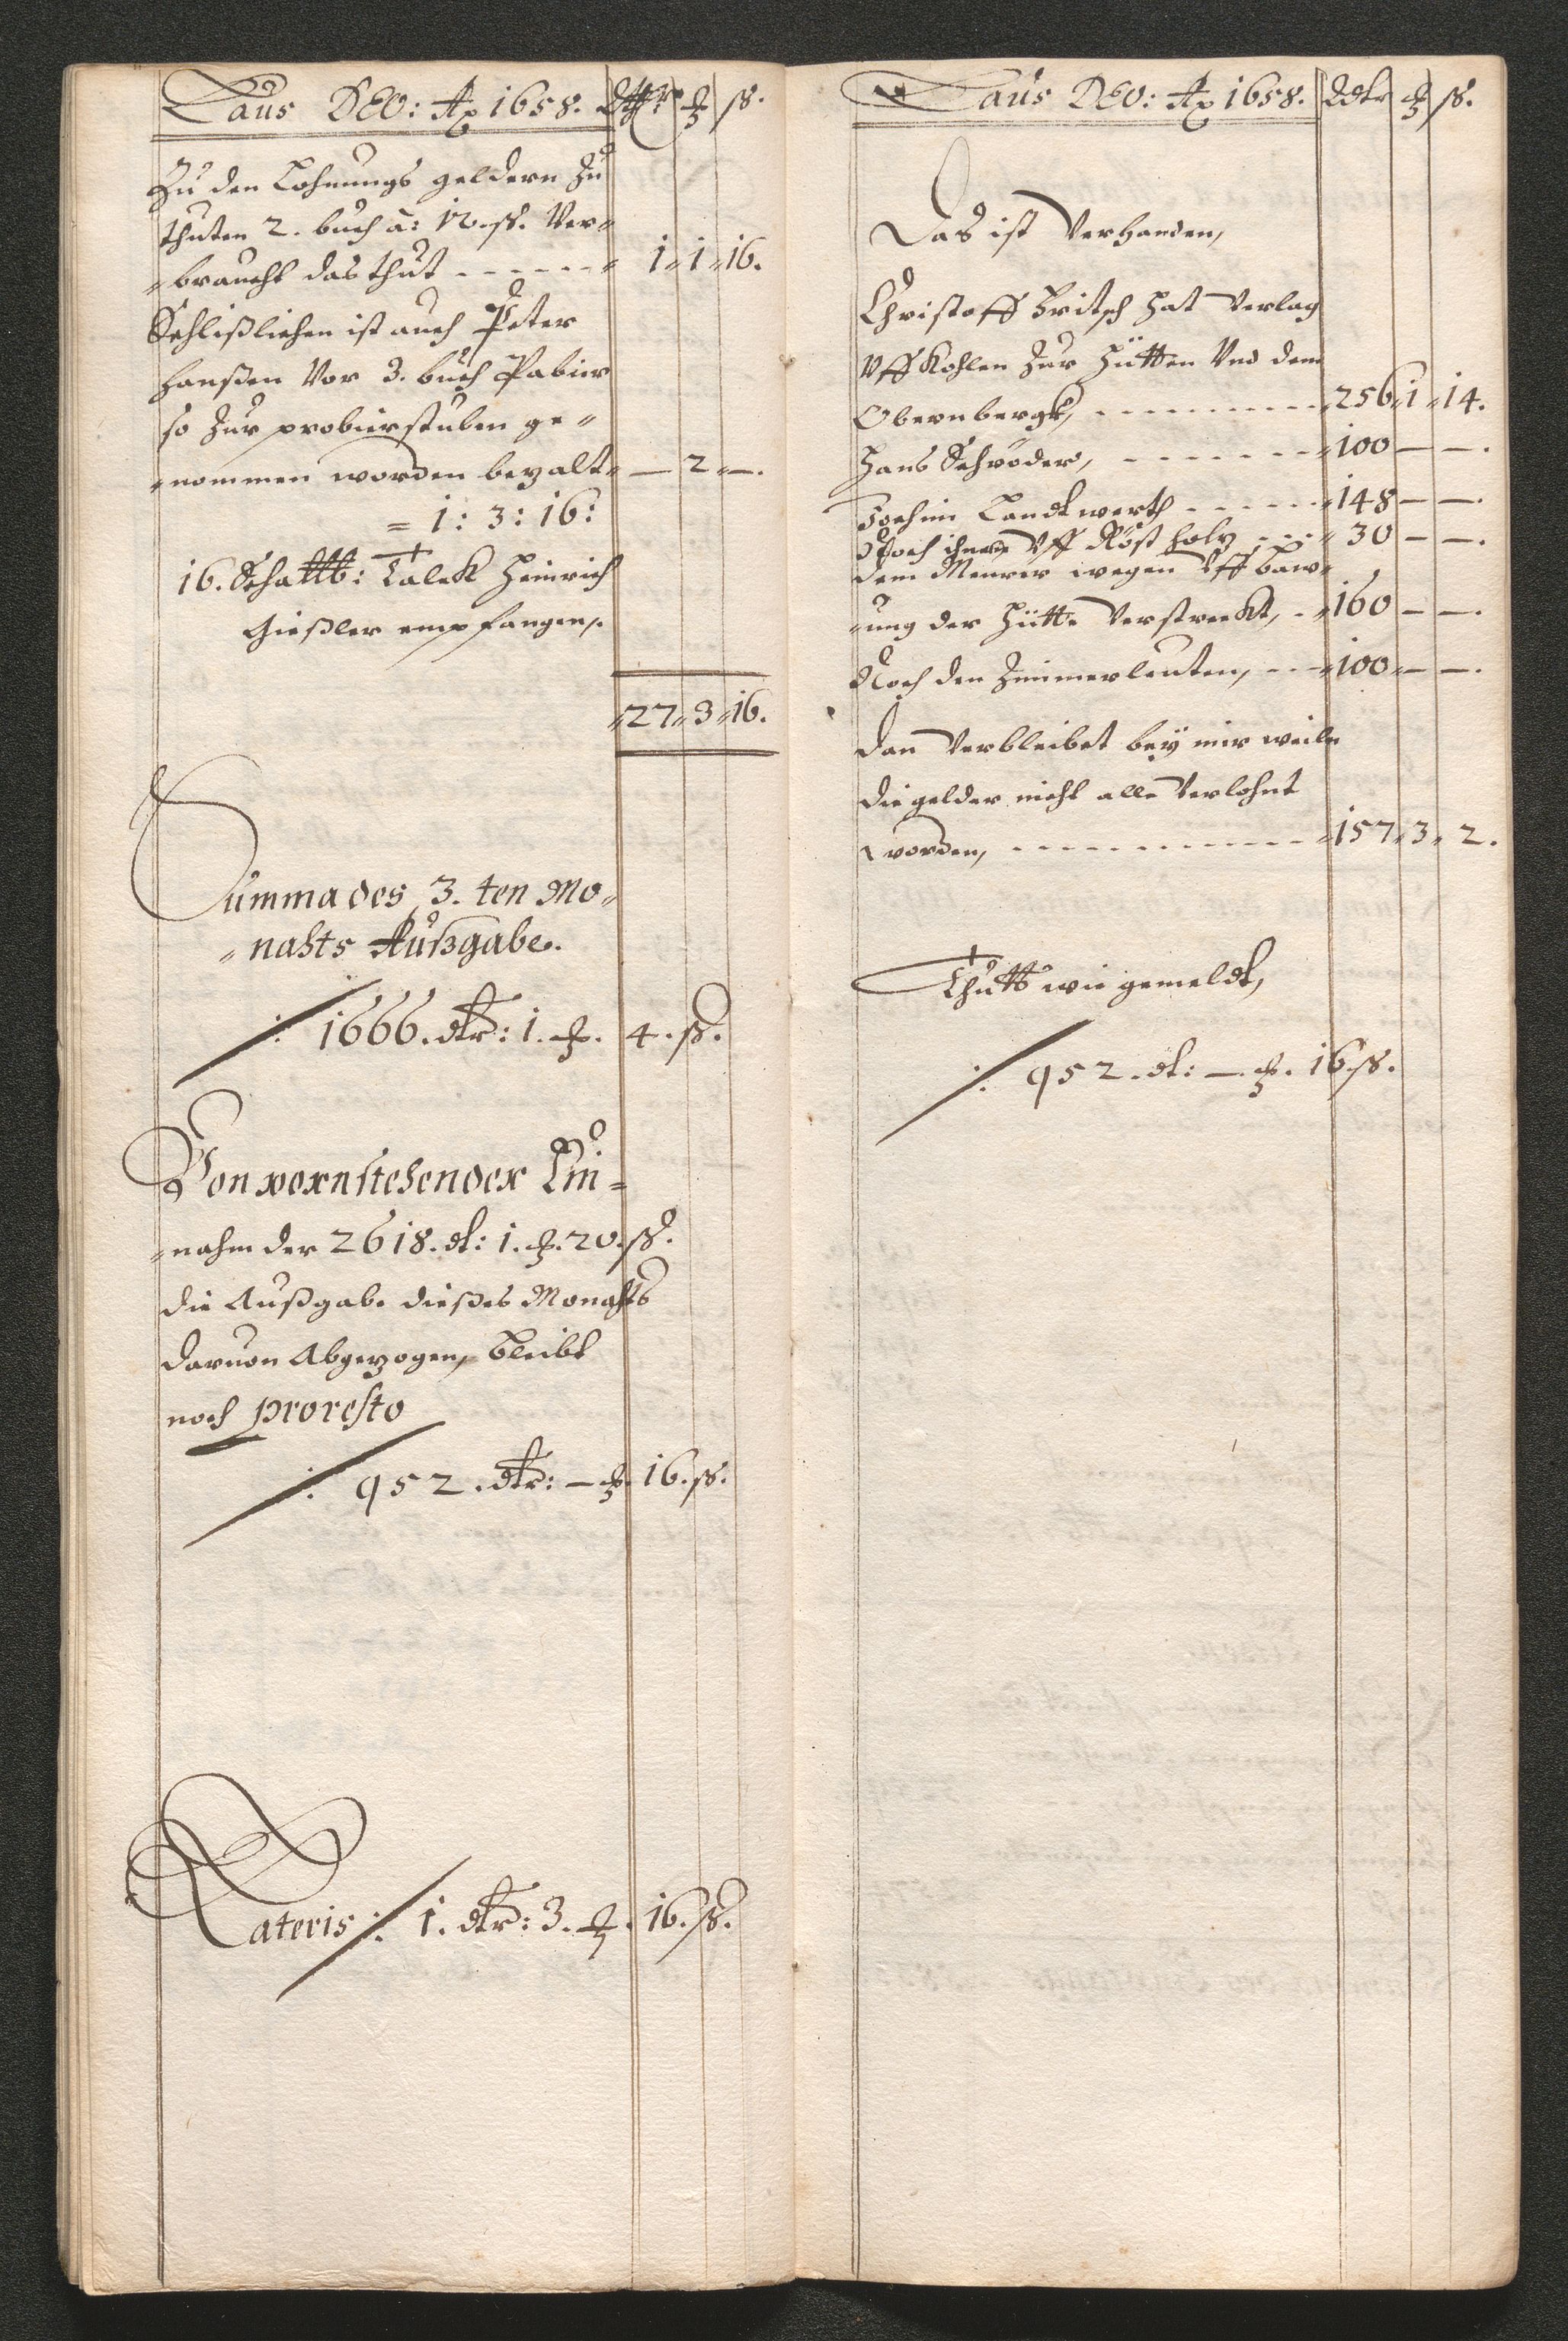 Laus DEO: Ao 1658. Rdtlr mk ß.
Zu den Lohnungs geldern zu
thuten 2. buch â: 12. ß. Ver-
-braucht das thut - - - - - - 1 1 16.
Schlißlichen ist auch Peter
Hanßen Vor 3. buch Pabier
so zur probier stuben ge-
-nommen worden bezalt - — 2 —.
= 1: 3: 16:
16. Schattb: Talck Heinrich
Gießler empfangen,
27 3 16.
Summa des 3. ten Mo-
-nahts Außgabe.
./. 1666. dlr: 1. mk. 4. ß.
Von vornstehender Ein=
-nahm der 2618. dl: 1. mk. 20. ß.
die Außgabe dießes Monahts
daruon Abgezogen, bleibt
noch pro resto
./. 952. dlr: — mk. 16. ß.
Lateris ./. 1. dlr: 3. mk. 16. ß.
Laus DEO: Ao 1658. Rdlr mk ß.
Das ist Verhanden,
Christoff Fritsch hat Verlag
Vff Kohlen zur Hütten Vnd dem
Obernbergk, - - - - - - 256 1 14.
Hans Schröder, - - - - - - 100 — —.
Jochim Landtwerth - - - - - 148 — —.
Noch ihnen Vff Röst holz - - - 30 — —.
dem Meurer wegen Vffbaw-
-ung der Hütte Verstreckt, - 160 — —.
Noch den Zimmerleuten, - - - 100 — —.
dan Verbleibet beÿ mir weiln
die gelder nicht alle Verlohnt
worden, - - - - - - - - 157 3 2.
Thutt wie gemeldt,
./. 952. dl: — mk. 16 ß.